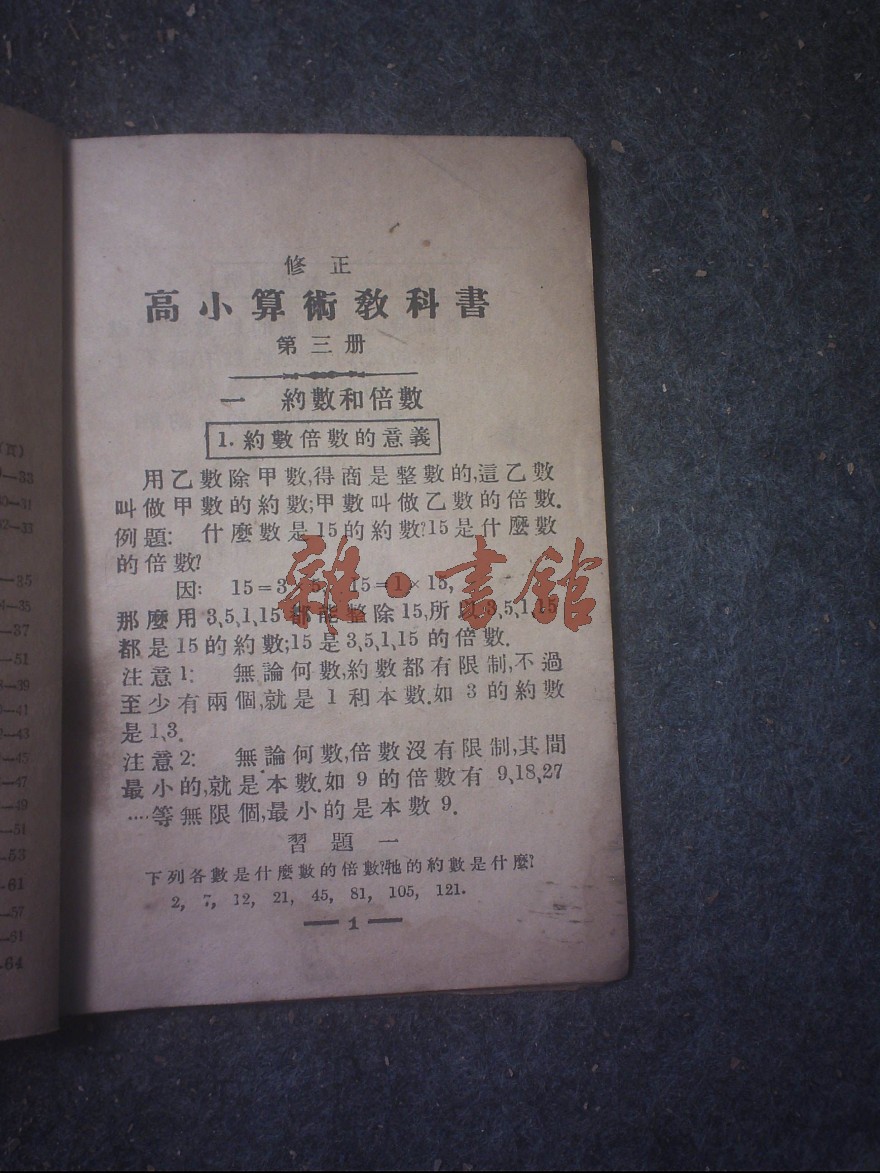 (頁)
—33
30—31
32—33
—35
34—35
—37
—51
38—39
—41
42—43
—45
—47
—49
—51
—53
—61
—57
—61
—64
修正
高小算術教科書
第三册
一 約數和倍數
1. 約數倍數的意義
用乙數除甲數,得商是整數的,這乙數
叫做甲數的約數;甲數叫做乙數的倍數.
例題: 什麼數是15的約數?15是什麼數
的倍數?
因: 15=3×5, 15=1×15,
那麼用3,5,1,15都能整除15,所以3,5,1,15
都是15的約數;15是3,5,1,15的倍數.
注意1: 無論何數,約數都有限制,不過
至少有兩個,就是1和本數.如3的約數
是1,3.
注意2: 無論何數,倍數沒有限制,其間
最小的,就是本數.如9的倍數有9,18,27
····等無限個,最小的是本數9.
習題一
下列各數是什麼數的倍數?牠的約數是什麼?
2, 7, 12, 21, 45, 81, 105, 121.
— 1 —
雜·書館